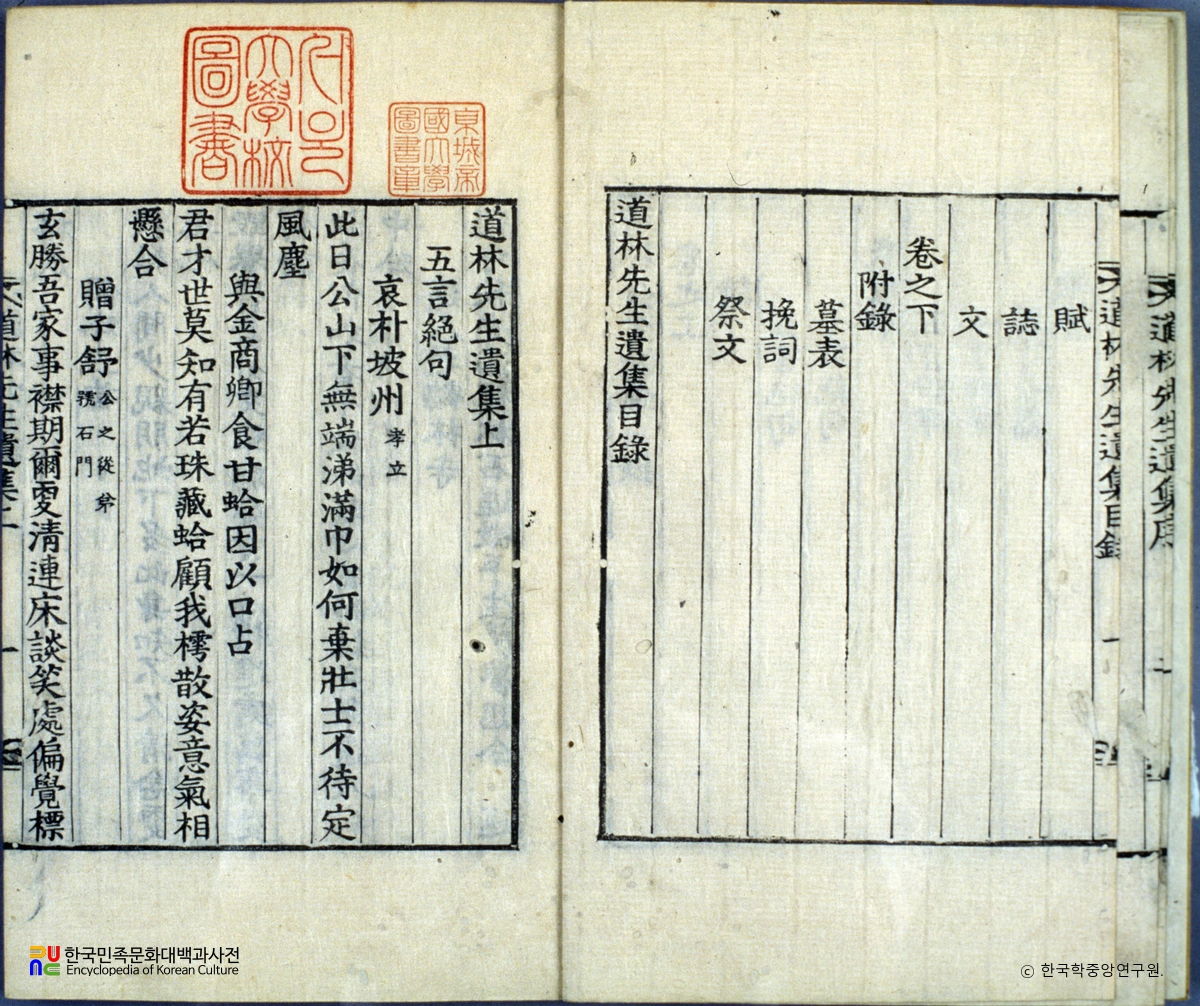 道林先生遺集序
道林先生遺集目錄 一
賦
誌
文
卷之下
附錄
墓表
挽詞
祭文
道林先生遺集目錄
京城帝
國大學
圖書章
서울
大學校
圖書
道林先生遺集上
五言絕句
哀朴坡州 孝立
此日公山下無端涕滿巾如何棄壯士不待定
風塵
與金商卿食甘蛤因以口占
君才世莫知有若珠藏蛤顧我樗散姿意氣相
懸合
贈子舒 公之從弟 號石門
玄勝吾家事襟期爾更清連床談笑處偏覺標
道林先生遺集上 一
한국민족문화대백과사전
Encyclopedia of Korean Culture
© 한국학중앙연구원.